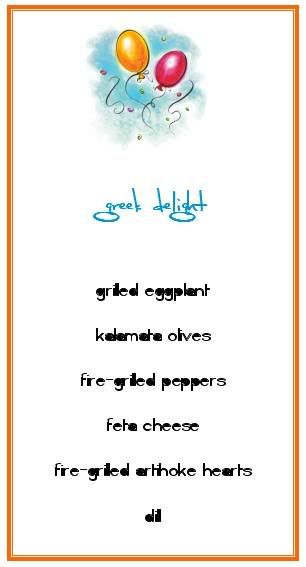 greek delight
grilled eggplant
kalamata olives
fire-grilled peppers
feta cheese
fire-grilled artihoke hearts
dill